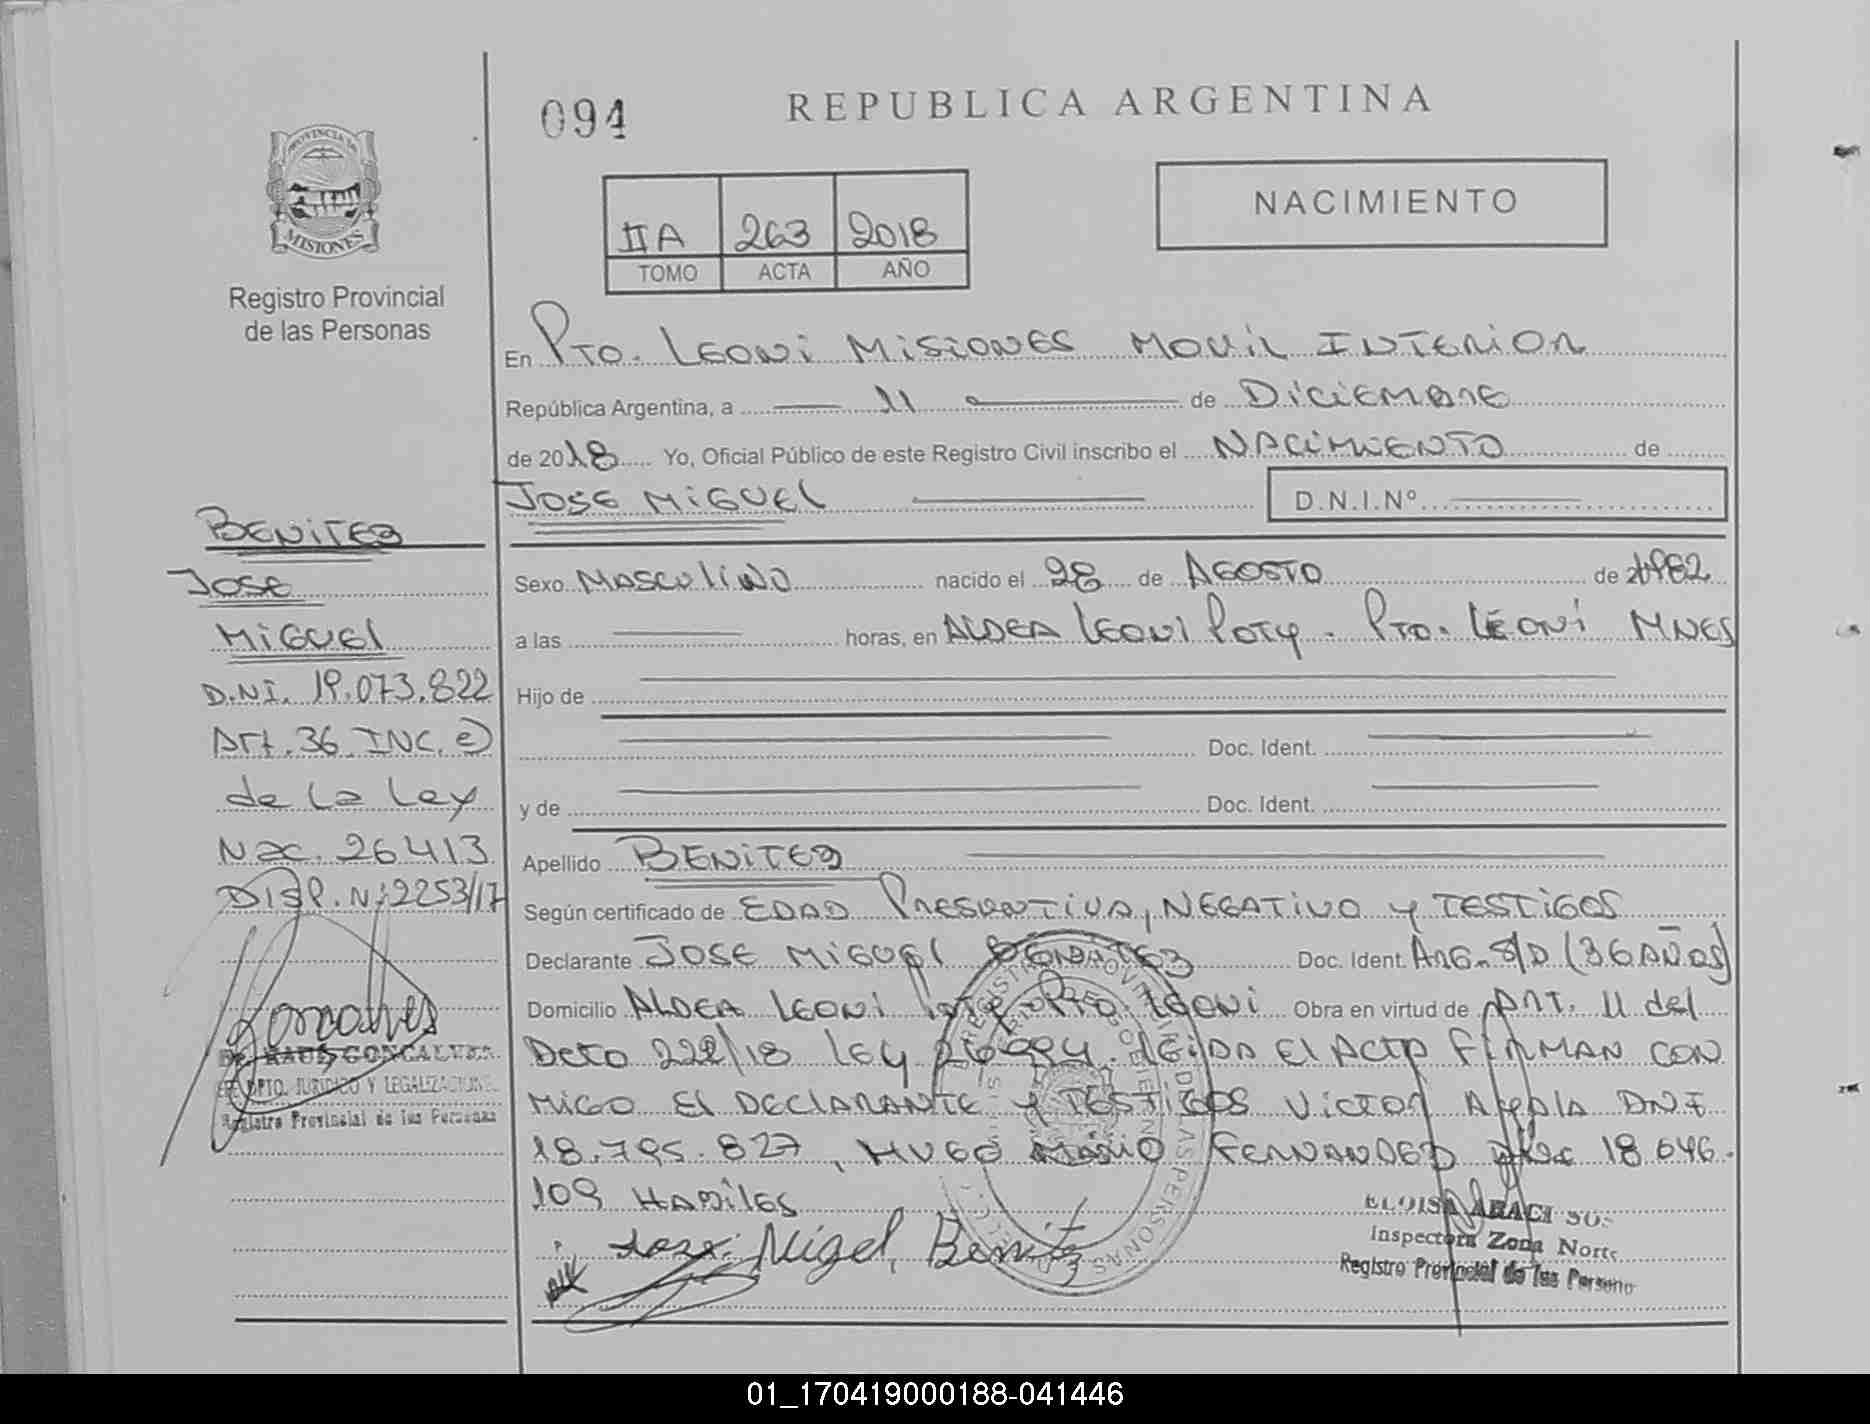 094
REPUBLICA ARGENTINA
NACIMIENTO
IIA 263 2018
TOMO ACTA AÑO
PROVINCIA DE
MISIONES
Registro Provincial
de las Personas
En Pto. Leoni Misiones Movil Interior
República Argentina, a 11 de Diciembre
de 2018 Yo, Oficial Público de este Registro Civil inscribo el Nacimiento de
Jose Miguel D.N.I.Nº
Sexo Masculino nacido el 28 de Agosto de 1982
a las horas, en Aldea Leoni Poty. Pto. Leoni Mnes
Hijo de
Doc. Ident.
y de Doc. Ident.
Apellido Benitez
Según certificado de Edad Presuntiva, Negativo y Testigos
Declarante Jose Miguel Benitez Doc. Ident. Arg. S/D (36 Años)
Domicilio Aldea Leoni Poty Pto. Leoni Obra en virtud de Art. 11 del
Dcto 222/18 Ley 26994. Leida el Acta Firman con
migo el Declarante y Testigos Victor Ayala DNI
18.795.827, Hugo Mario Fernandez 18.646.
109 Habiles
Jose Migel, Benitez
Inspectora Zona Norte
Registro Provincial de las Persona
Benitez
Jose
Miguel
D.N.I. 19.073.822
Art. 36 Inc. e)
de la Ley
Nac. 26413
Disp. N: 2253/17
Goncalves
Dr. RAUL GONCALVES
DPTO. JURIDICO Y LEGALIZACIONE
Registro Provincial de las Personas
01_170419000188-041446